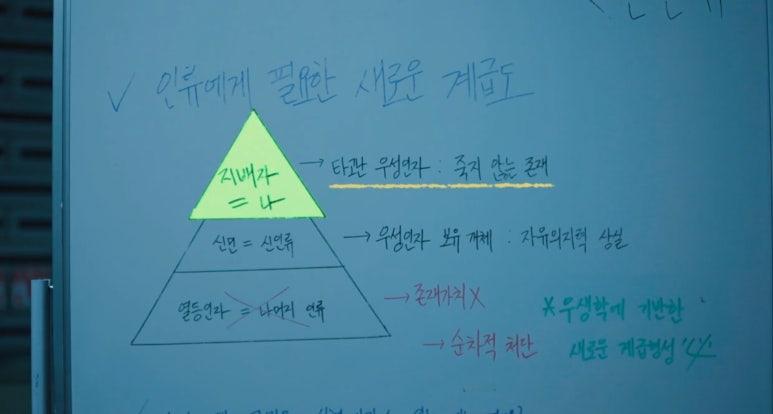 ✓ 인류에게 필요한 새로운 계급도
지배자
= 나
→ 타고난 우성인자 : 죽지 않는 존재
신인 = 신인류
→ 우성인자 보유 개체 : 자유의지력 상실
열등인자 = 나머지 인류
→ 존재가치 X
→ 순차적 처단
* 우생학에 기반한
새로운 계급형성